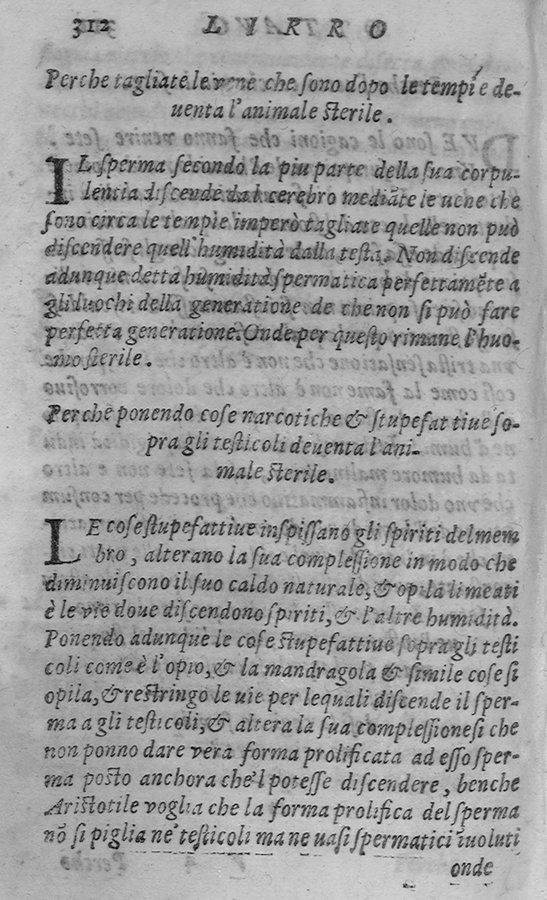 312 LIBRO
Perche tagliate le vene che sono dopo le tempie de-
uenta l'animale sterile.
IL sperma secondo la piu parte della sua corpu-
lentia discende dal cerebro mediãte le uene che
sono circa le tempie imperò tagliate quelle non può
discendere quell'humidità dalla testa. Non discende
adunque detta humidità spermatica perfettamẽte a
gli luochi della generatione de che non si può fare
perfetta generatione. Onde per questo rimane l'huo-
mo sterile.
Perche ponendo cose narcotiche & stupefattiue so-
pra gli testicoli deuenta l'ani-
male sterile.
LE cose stupefattiue inspissano gli spiriti del mem
bro, alterano la sua complessione in modo che
diminuiscono il suo caldo naturale, & opila li meati
è le vie doue discendono spiriti, & l'altre humidità.
Ponendo adunque le cose stupefattiue sopra gli testi
coli come è l'opio, & la mandragola & simile cose si
opila, & restringo le uie per lequali discende il sper-
ma a gli testicoli, & altera la sua complessione si che
non ponno dare vera forma prolificata ad esso sper-
ma posto anchora che'l potesse discendere, benche
Aristotile voglia che la forma prolifica del sperma
nõ si piglia ne testicoli ma ne uasi spermatici iuoluti
onde